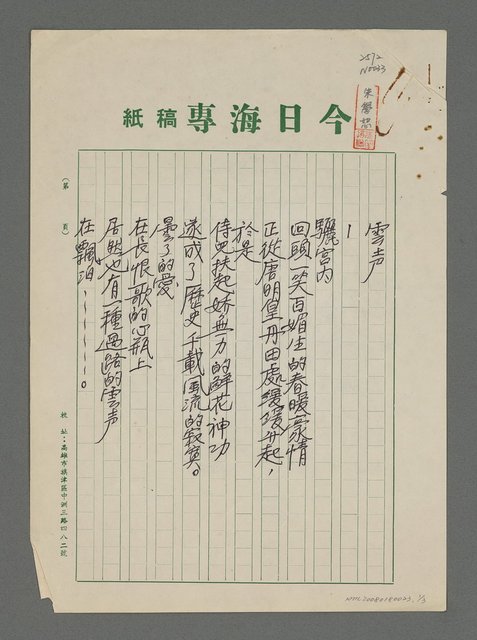 2572
N0033
朱學恕
今日海專稿紙
(第 頁)
雲声
1
驪宮內
回頭一笑百媚生的春暖豪情
正從唐明皇丹田處緩緩升起，
於是
侍兒扶起嬌無力的鮮花神功
遂成了歷史千載風流的寂寞。
曇了的愛
在長恨歌的心瓶上
居然也有一種過路的雲声
在飄泊～～～～～～。
校址：高雄市旗津區中洲三路四八二號
NML20080180023. 1/3